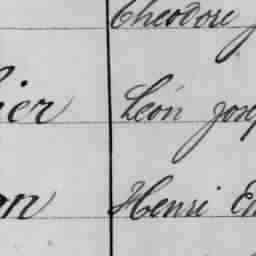 Théodore
ier Léon Jose
on Henri Em